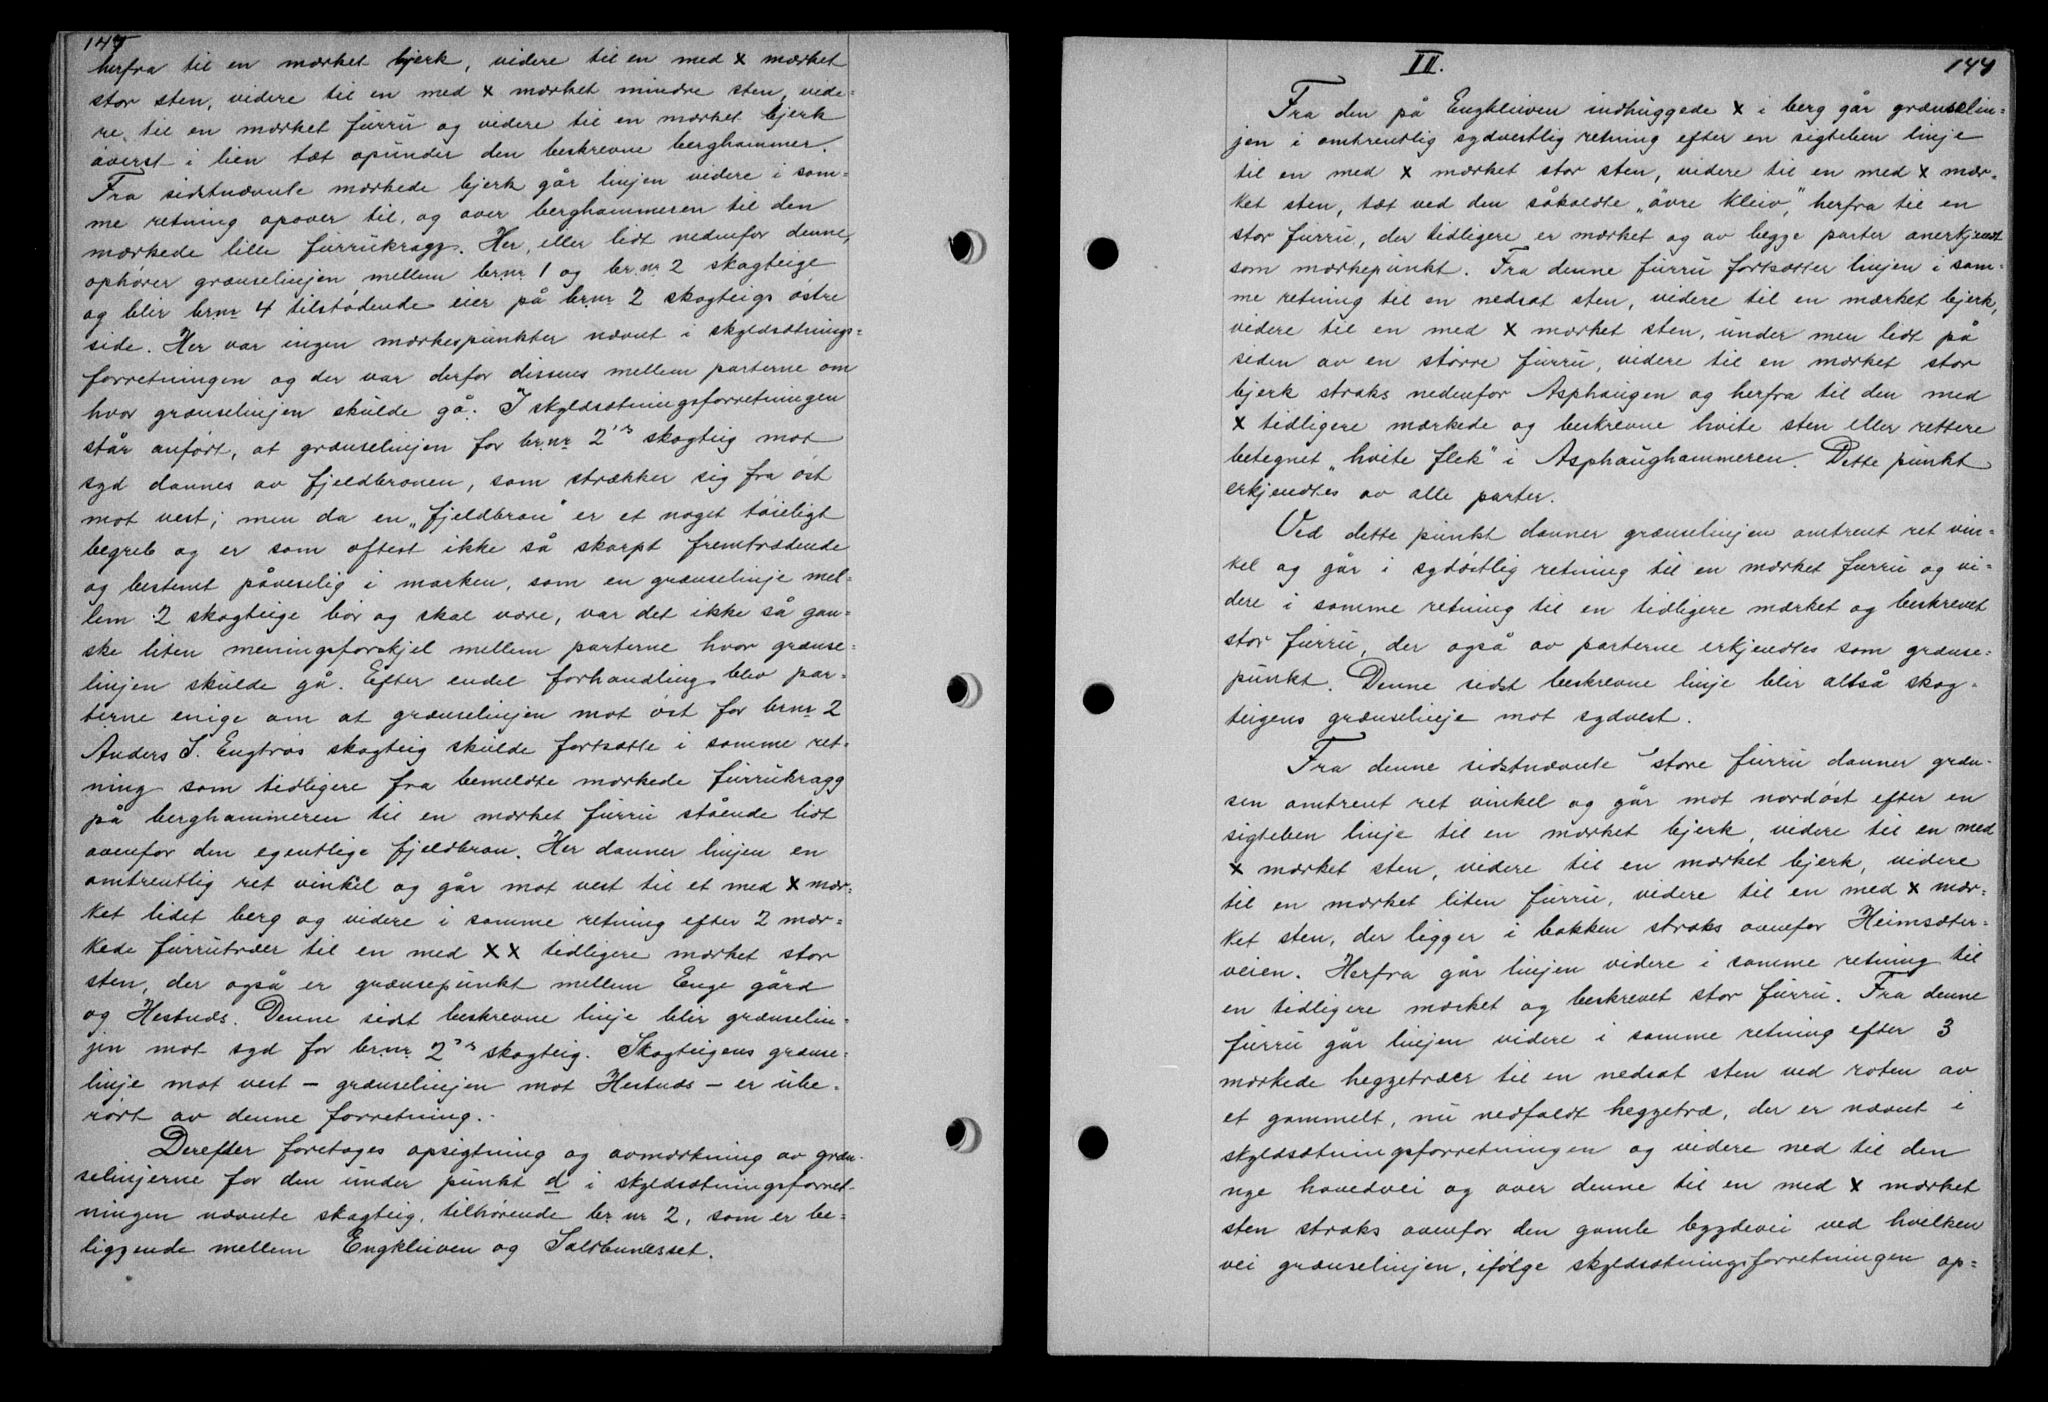 herfra til en mærket bjerk, videre til en med x mærket
stor sten, videre til en med x mærket mindre sten, vide-
re til en mærket furru og videre til en mærket bjerk
øverst i lien tæt opunder den beskrevne berghammer.
Fra sidstnævnte mærkede bjerk går linjen videre i sam-
me retning opover til og over berghammeren til den
mærkede lille furrukragg. Her, eller lidt nedenfor denne,
ophører grænselinjen mellem br.nr 1 og br.nr 2 skogteige
og blir br.nr 4 tilstødende eier på br.nr 2 skogteigs østre
side. Her var ingen mærkespunkter nævnt i skyldsætnings=
forretningen og der var derfor dissens mellem parterne om
hvor grænselinjen skulde gå. I skyldsætningsforretningen
står anført, at grænselinjen for br.nr 2's skogteig mot
syd dannes av fjeldbronen, som strækker sig fra øst
mot vest; men da en "fjeldbron" er et noget tøieligt
begreb og er som oftest ikke så skarpt fremtrædende
og bestemt påviselig i marken, som en grænselinje mel-
lem 2 skogteige bør og skal være, var det ikke så gan-
ske liten meningsforskjel mellem parterne hvor grænse=
linjen skulde gå. Efter endel forhandling blev par=
terne enige om at grænselinjen mot øst for br.nr 2
Anders S. Engtrøs skogteig skulde fortsætte i samme ret-
ning som tidligere fra bemeldte mærkede furrukragg
på berghammeren til en mærket furru stående lidt
ovenfor den egentlige fjeldbron. Her danner linjen en
omtrentlig ret vinkel og går mot vest til et med x mær-
ket lidet berg og videre i samme retning efter 2 mær=
kede furrutrær til en med xx tidligere mærket stor
sten, der også er grænsepunkt mellem Enge gård
og Hestnes. Denne sidst beskrevne linje blir grænselin=
jen mot syd for br.nr. 2's skogteig. Skogteigens grænse=
linje mot vest - grænselinjen mot Hestnes - er ube=
rørt av denne forretning.
Derefter foretoges opsigtning og avmærkning av græn-
selinjerne for den under punkt d i skyldsætningsforret-
ningen nævnte skogteig, tilhørende br.nr 2, som er be=
liggende mellem Engkleiven og Saltbuneset.
II.
144
Fra den på Engkleiven indhuggede x i berg går grænselin=
jen i omtrentlig sydvestlig retning efter en sigteben linje
til en med x mærket stor sten, videre til en med x mær=
ket sten, tæt ved den såkaldte "øvre kleiv", herfra til en
stor furru, der tidligere er mærket og av begge parter anerkjendt
som mærkepunkt. Fra denne furru fortsætter linjen i sam=
me retning til en nedsat sten, videre til en mærket bjerk,
videre til en med x mærket sten, under men lidt på
siden av en større furru, videre til en mærket stor
bjerk straks nedenfor Asphaugen og herfra til den med
x tidligere mærkede og beskrevne hvite sten eller rettere
betegnet "hvite flek" i Asphaughammeren. Dette punkt
erkjendtes av alle parter.
Ved dette punkt danner grænselinjen omtrent ret vin=
kel og går i sydøstlig retning til en mærket furru og vi=
dere i samme retning til en tidligere mærket og beskrevet
stor furru, der også av parterne erkjendtes som grænse=
punkt. Denne sidst beskrevne linje blir altså skog=
teigens grænselinje mot sydvest.
Fra denne sidstnævnte store furru danner græn-
sen omtrent ret vinkel og går mot nordøst efter en
sigteben linje til en mærket bjerk, videre til en med
x mærket sten, videre til en mærket bjerk, videre
til en mærket liten furru, videre til en med x mær=
ket sten, der ligger i bakken straks ovenfor Heimsæter=
veien. Herfra går linjen videre i samme retning til
en tidligere mærket og beskrevet stor furru. Fra denne
furru går linjen videre i samme retning efter 3
mærkede heggetrær til en nedsat sten ved roten av
et gammelt, nu nedfaldt heggetræ, der er nævnt i
skyldsætningsforretningen og videre ned til den
nye hovedvei og over denne til en med x mærket
sten straks ovenfor den gamle bygdevei ved hvilken
vei grænselinjen, ifølge skyldsætningsforretningen op=